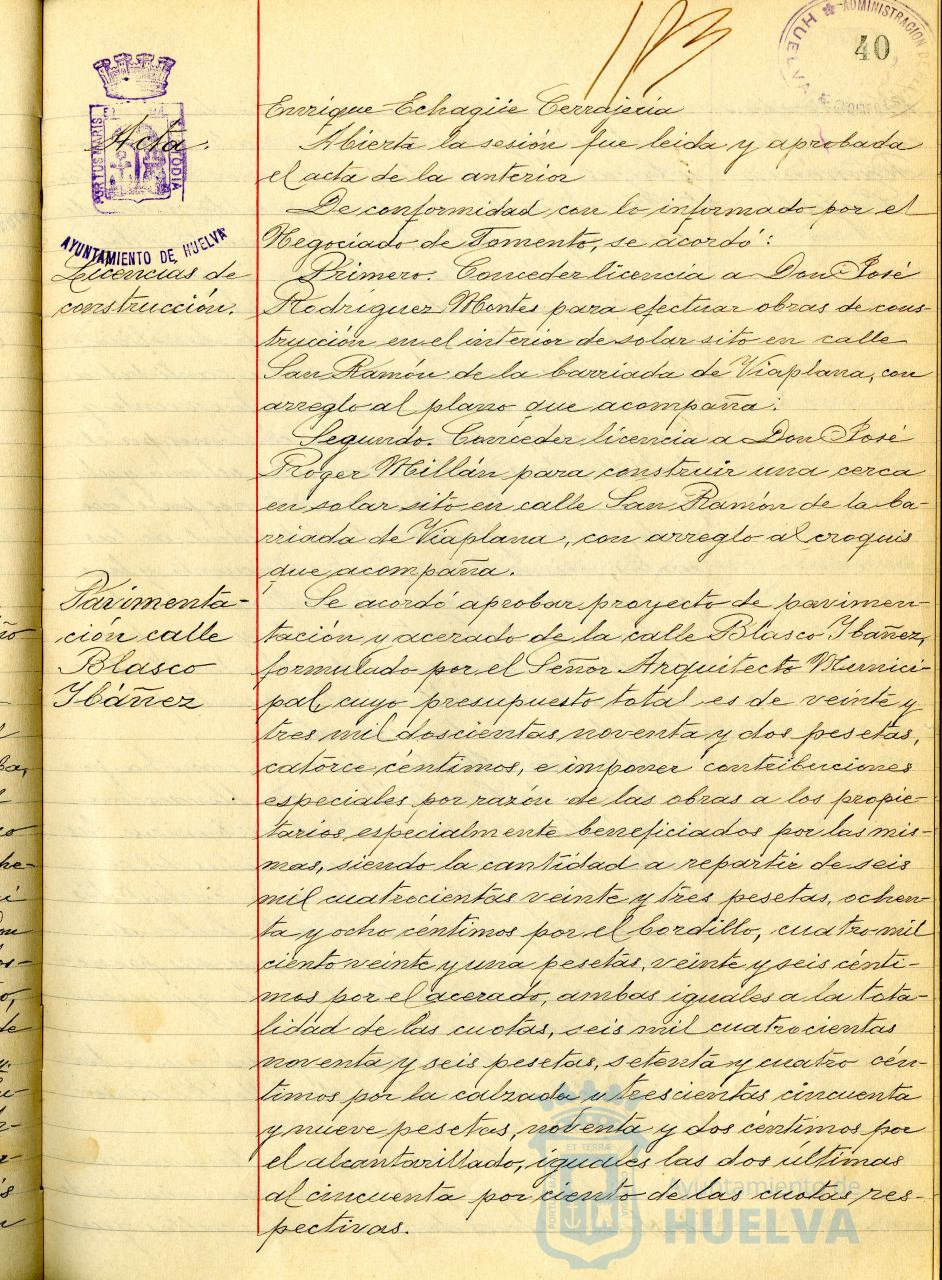 183
ADMINISTRACION DE
HUELVA
40
PORTUS MARIS
CUSTODIA
AYUNTAMIENTO DE HUELVA
Enrique Echagüe Cerrajería
Acta.
Abierta la sesión fue leida y aprobada
el acta de la anterior
De conformidad con lo informado por el
Negociado de Fomento, se acordó:
Licencias de
construcción.
Primero. Conceder licencia a Don José
Rodríguez Montes para efectuar obras de cons-
trucción en el interior de solar sito en calle
San Ramón de la barriada de Viaplana, con
arreglo al plano que acompaña.
Segundo. Conceder licencia a Don José
Roger Millán para construir una cerca
en solar sito en calle San Ramón de la ba-
rriada de Viaplana, con arreglo al croquis
que acompaña.
Pavimenta-
ción calle
Blasco
Ibáñez
Se acordó aprobar proyecto de pavimen-
tación y acerado de la calle Blasco Ibañez,
formulado por el Señor Arquitecto Munici-
pal cuyo presupuesto total es de veinte y
tres mil doscientas noventa y dos pesetas,
catorce céntimos, e imponer contribuciones
especiales por razón de las obras a los propie-
tarios especialmente beneficiados por las mis-
mas, siendo la cantidad a repartir de seis
mil cuatrocientas veinte y tres pesetas, ochen-
ta y ocho céntimos por el bordillo, cuatro mil
ciento veinte y una pesetas, veinte y seis cénti-
mos por el acerado, ambas iguales a la tota-
lidad de las cuotas, seis mil cuatrocientas
noventa y seis pesetas, setenta y cuatro cén-
timos por la calzada y trescientas cincuenta
y nueve pesetas, noventa y dos céntimos por
el alcantarillado, iguales las dos últimas
al cincuenta por ciento de las cuotas res-
pectivas.
Ayuntamiento de
HUELVA